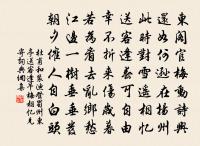 東閣官梅動詩興
還如何遜在揚州
此時對雪遙相憶
送客逢春可自由
幸不折來傷歲暮
若為看去亂鄉愁
江邊一樹垂垂發
朝夕催人自白頭
杜甫和裴迪登蜀州東
亭送客逢早梅相憶見
寄詞典網集